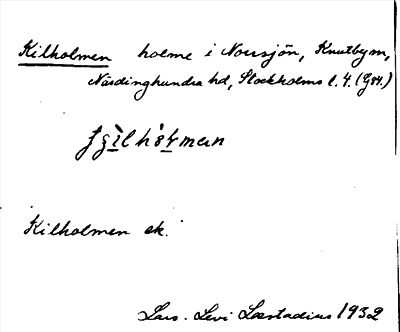 Kilholmen holme i Norrsjön, Knutbym,
Närdinghundra hd, Stockholms l. 4. (G84.)
Kilholmen ek.
Lars-Levi Læstadius 1932